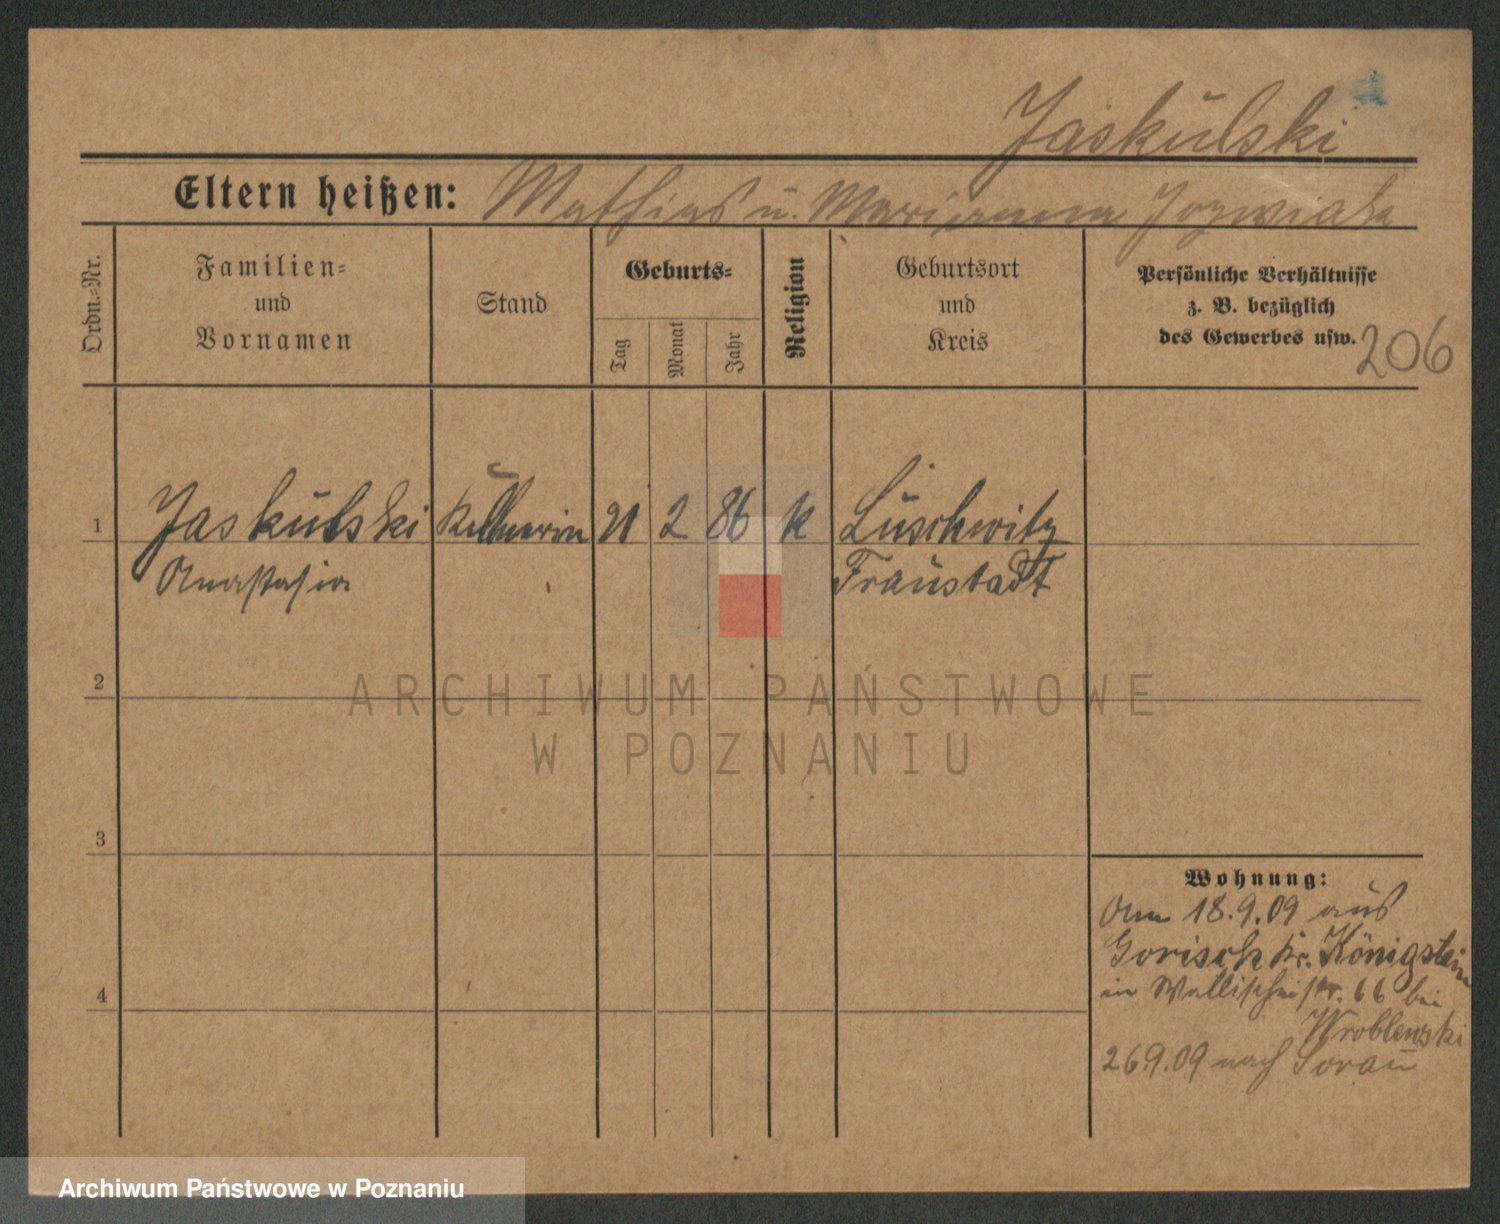 Jaskulski
Eltern heißen: Mathias u. Marianna Jozwiak
Ordn.-Nr.
Familien-
und
Vornamen
Stand
Geburts-
Tag
Monat
Jahr
Religion
Geburtsort
und
Kreis
Persönliche Verhältnisse
z. B. bezüglich
des Gewerbes usw.
206
1 Jaskulski Kellnerin 21 2 86 k Luschwitz
Anastasia Fraustadt
2
ARCHIWUM PAŃSTWOWE
W POZNANIU
3
Wohnung:
Am 18.9.09 aus
Gorisch Kr. Königstein
4
in Wallischeistr. 66 bei
Wroblewski
26.9.09 nach Sorau
Archiwum Państwowe w Poznaniu